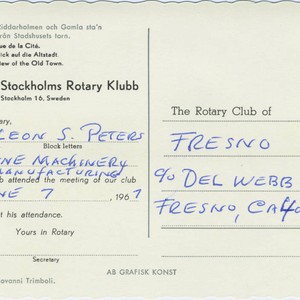 Riddarholmen och Gamla sta'n
från Stadshusets torn.
ue de la Cité.
ick auf die Altstadt.
ew of the Old Town.
Stockholms Rotary Klubb
Stockholm 16, Sweden
ary,
LEON S. PETERS
Block letters
NE MACHINERY
MANUFACTURING
b attended the meeting of our club
NE 7, 1967
st his attendance.
Yours in Rotary
Secretary
ovanni Trimboli.
AB GRAFISK KONST
The Rotary Club of
FRESNO
c/o DEL WEBB
FRESNO,